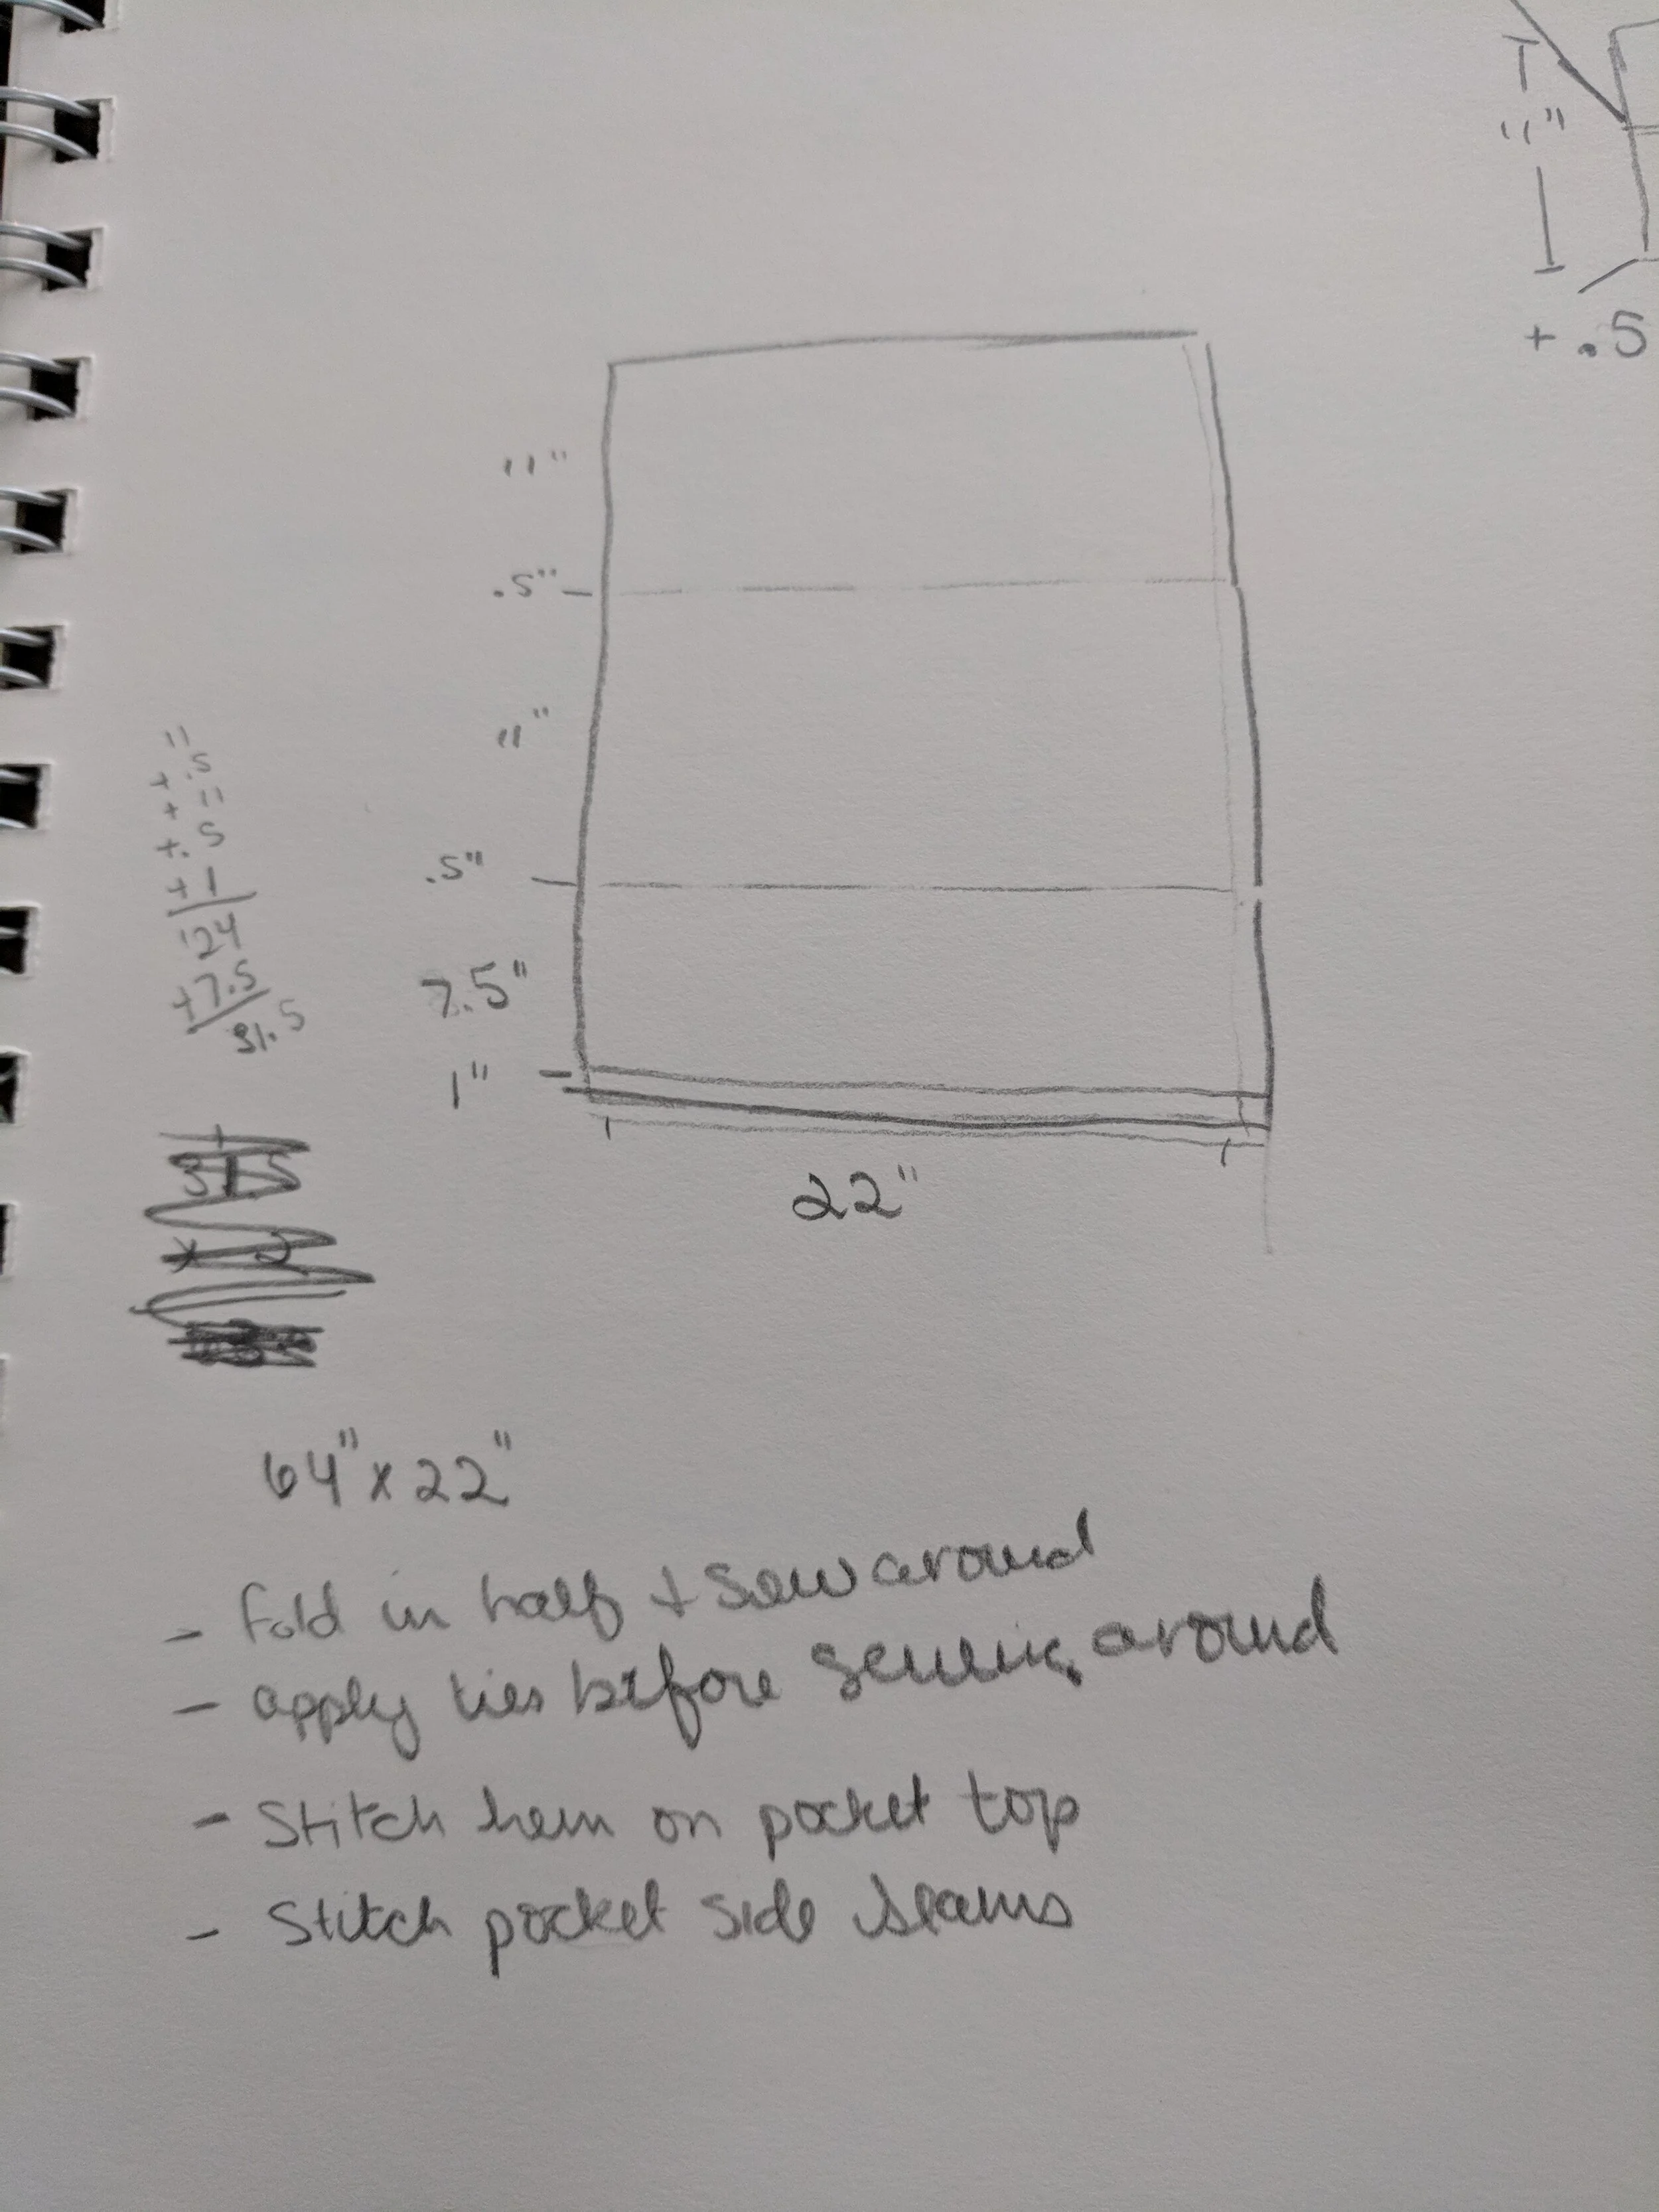 11"
+ .5
11"
.5"
11"
.5"
7.5"
1"
22"
11
+ .5
+ 11
+ .5
+ 1
24
+7.5
31.5
31.5
x 2
64" x 22"
- Fold in half + sew around
- apply ties before sewing around
- Stitch hem on pocket top
- Stitch pocket side seams